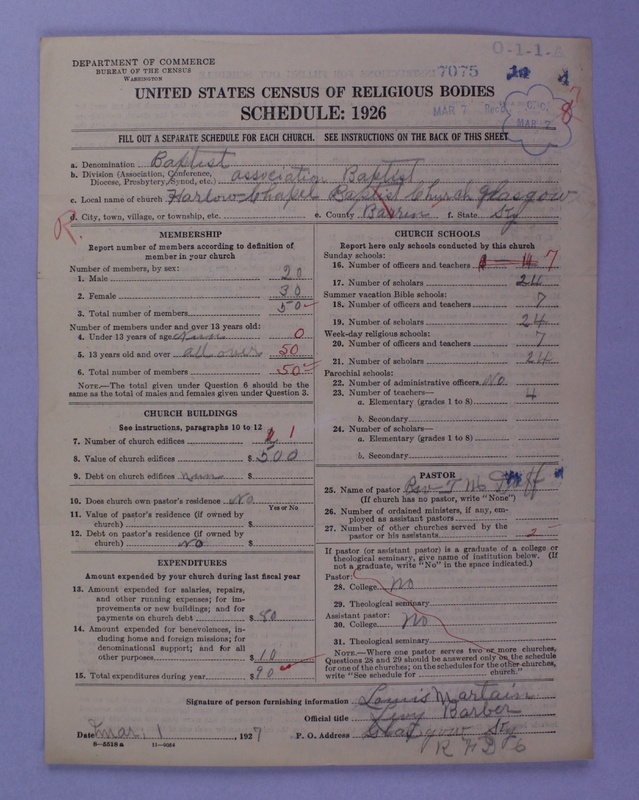 O-1-1-A
DEPARTMENT OF COMMERCE
BUREAU OF THE CENSUS
WASHINGTON
7075
UNITED STATES CENSUS OF RELIGIOUS BODIES
SCHEDULE: 1926
MAR 7 Rec'd
MAR 7
8
FILL OUT A SEPARATE SCHEDULE FOR EACH CHURCH. SEE INSTRUCTIONS ON THE BACK OF THIS SHEET
a. Denomination Baptist
b. Division (Association, Conference, Diocese, Presbytery, Synod, etc.) association Baptist
c. Local name of church Harlow-Chapel Baptist Church Glasgow
d. City, town, village, or township, etc. e. County Barren f. State Ky
R.
MEMBERSHIP
Report number of members according to definition of
member in your church
Number of members, by sex:
1. Male 20
2. Female 30
3. Total number of members 50
Number of members under and over 13 years old:
4. Under 13 years of age 0
5. 13 years old and over all over 50
6. Total number of members 50
NOTE.—The total given under Question 6 should be the
same as the total of males and females given under Question 3.
CHURCH BUILDINGS
See instructions, paragraphs 10 to 12
7. Number of church edifices 1
8. Value of church edifices $ 500
9. Debt on church edifices $
10. Does church own pastor's residence No
Yes or No
11. Value of pastor's residence (if owned by
church) $
12. Debt on pastor's residence (if owned by
church) no $
EXPENDITURES
Amount expended by your church during last fiscal year
13. Amount expended for salaries, repairs,
and other running expenses; for im-
provements or new buildings; and for
payments on church debt $ 80
14. Amount expended for benevolences, in-
cluding home and foreign missions; for
denominational support; and for all
other purposes $ 10
15. Total expenditures during year $ 90
CHURCH SCHOOLS
Report here only schools conducted by this church
Sunday schools:
16. Number of officers and teachers 7
17. Number of scholars 24
Summer vacation Bible schools:
18. Number of officers and teachers 7
19. Number of scholars 24
Week-day religious schools:
20. Number of officers and teachers 7
21. Number of scholars 24
Parochial schools:
22. Number of administrative officers No
23. Number of teachers— 4
a. Elementary (grades 1 to 8)
b. Secondary
24. Number of scholars—
a. Elementary (grades 1 to 8)
b. Secondary
PASTOR
25. Name of pastor Rev T M
(If church has no pastor, write "None")
26. Number of ordained ministers, if any, em-
ployed as assistant pastors
27. Number of other churches served by the
pastor or his assistants 2
If pastor (or assistant pastor) is a graduate of a college or
theological seminary, give name of institution below. (If
not a graduate, write "No" in the space indicated.)
Pastor:
28. College No
29. Theological seminary
Assistant pastor:
30. College No
31. Theological seminary
NOTE.—Where one pastor serves two or more churches,
Questions 28 and 29 should be answered only on the schedule
for one of the churches; on the schedules for the other churches,
write "See schedule for church."
Signature of person furnishing information Louis Martain
Official title Levy Barber
Date Mar. 1, 1927 P. O. Address Glasgow Ky
R F D 6
8—5518 a 11—9054